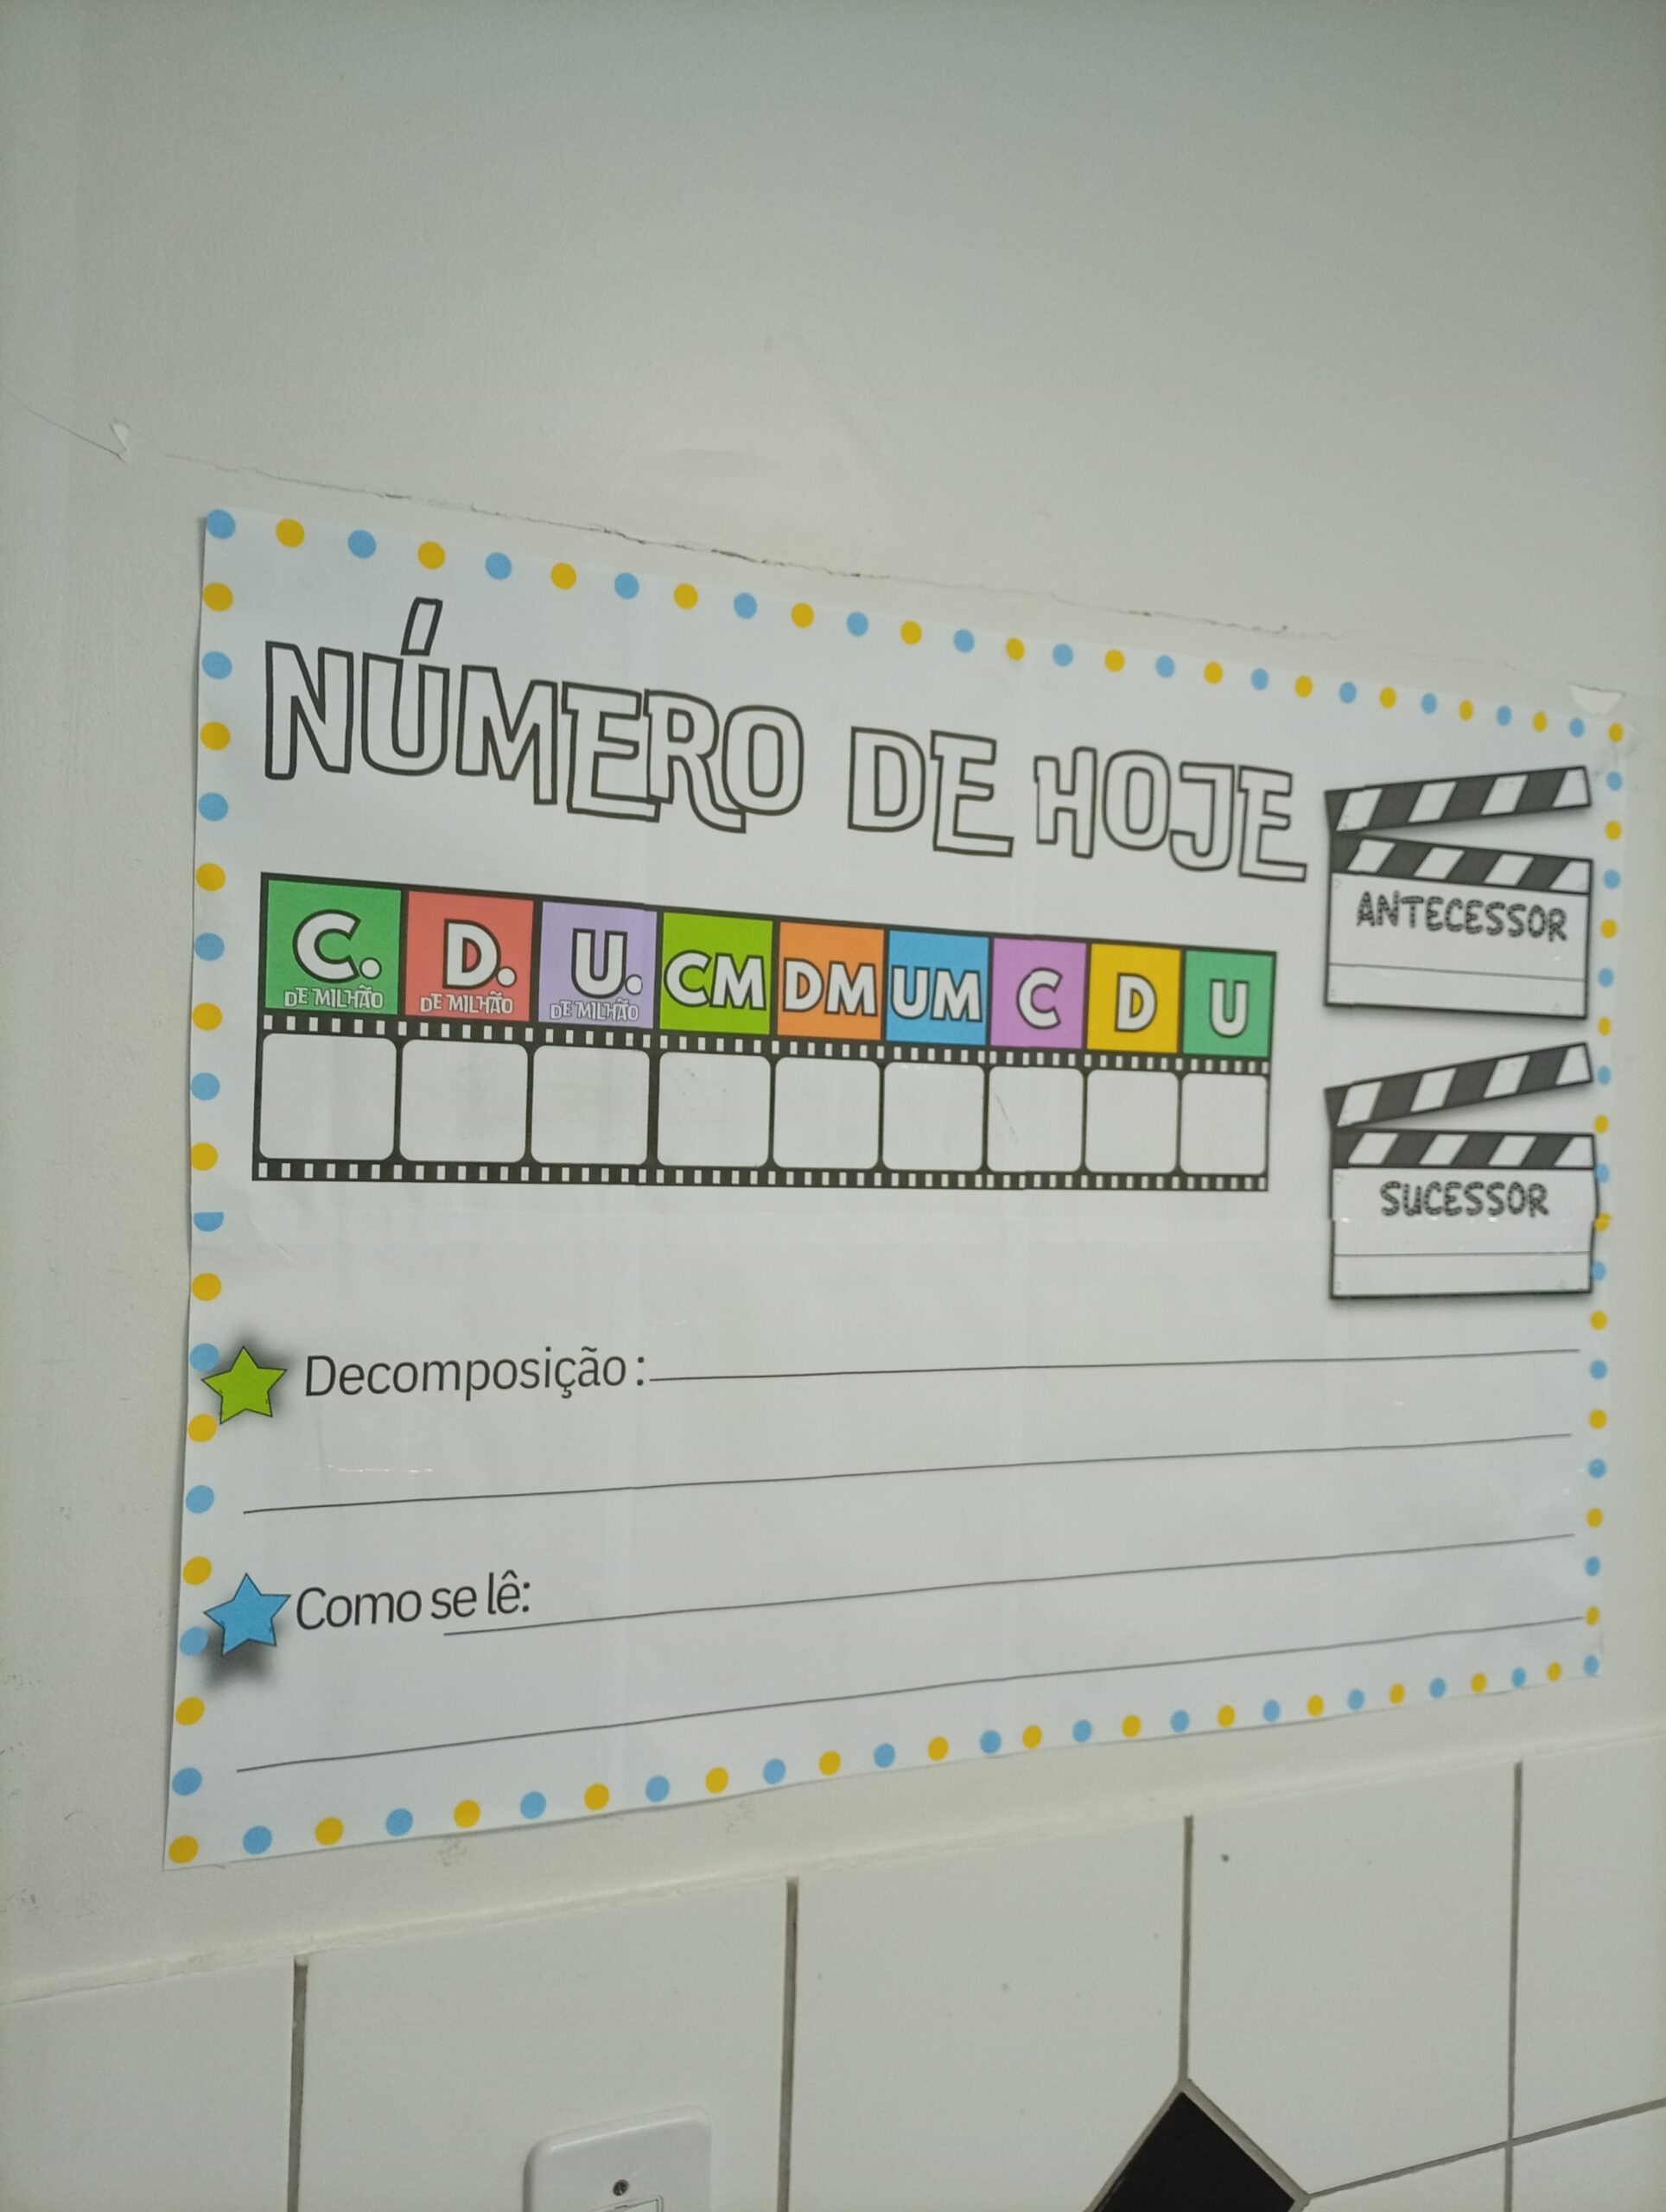 NÚMERO DE HOJE
C. D. U. CM DM UM C D U
DE MILHÃO DE MILHÃO DE MILHÃO
ANTECESSOR
SUCESSOR
Decomposição:
Como se lê: